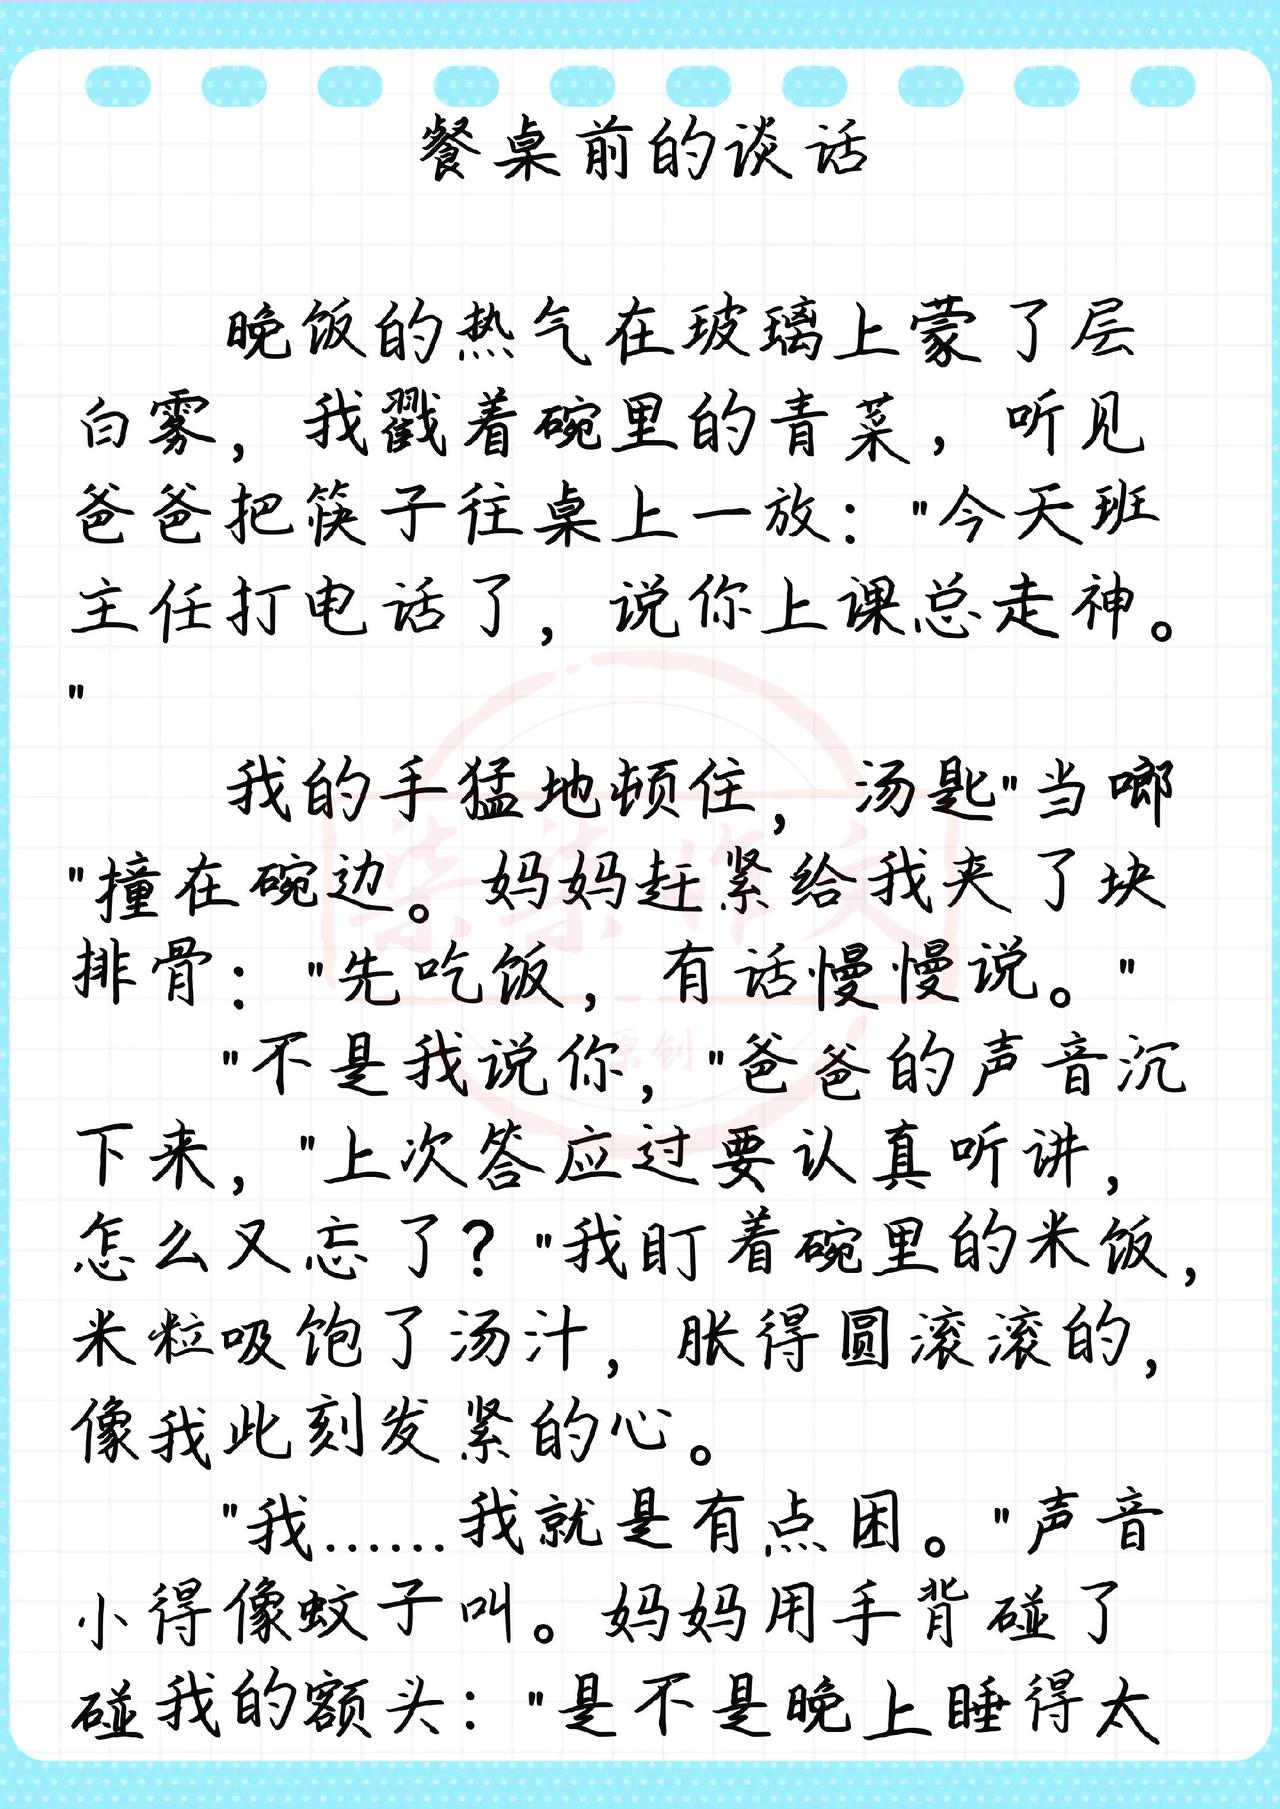 餐桌前的谈话
晚饭的热气在玻璃上蒙了层
白雾，我戳着碗里的青菜，听见
爸爸把筷子往桌上一放："今天班
主任打电话了，说你上课总走神。
"
我的手猛地顿住，汤匙"当啷
"撞在碗边。妈妈赶紧给我夹了块
排骨："先吃饭，有话慢慢说。"
"不是我说你，"爸爸的声音沉
下来，"上次答应过要认真听讲，
怎么又忘了？"我盯着碗里的米饭，
米粒吸饱了汤汁，胀得圆滚滚的，
像我此刻发紧的心。
"我……我就是有点困。"声音
小得像蚊子叫。妈妈用手背碰了
碰我的额头："是不是晚上睡得太
柒柒作文
原创